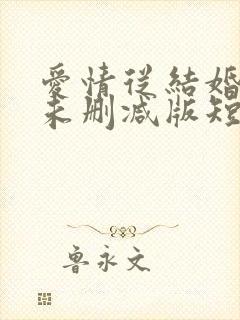 愛情從結婚
未刪减版短
魯永文